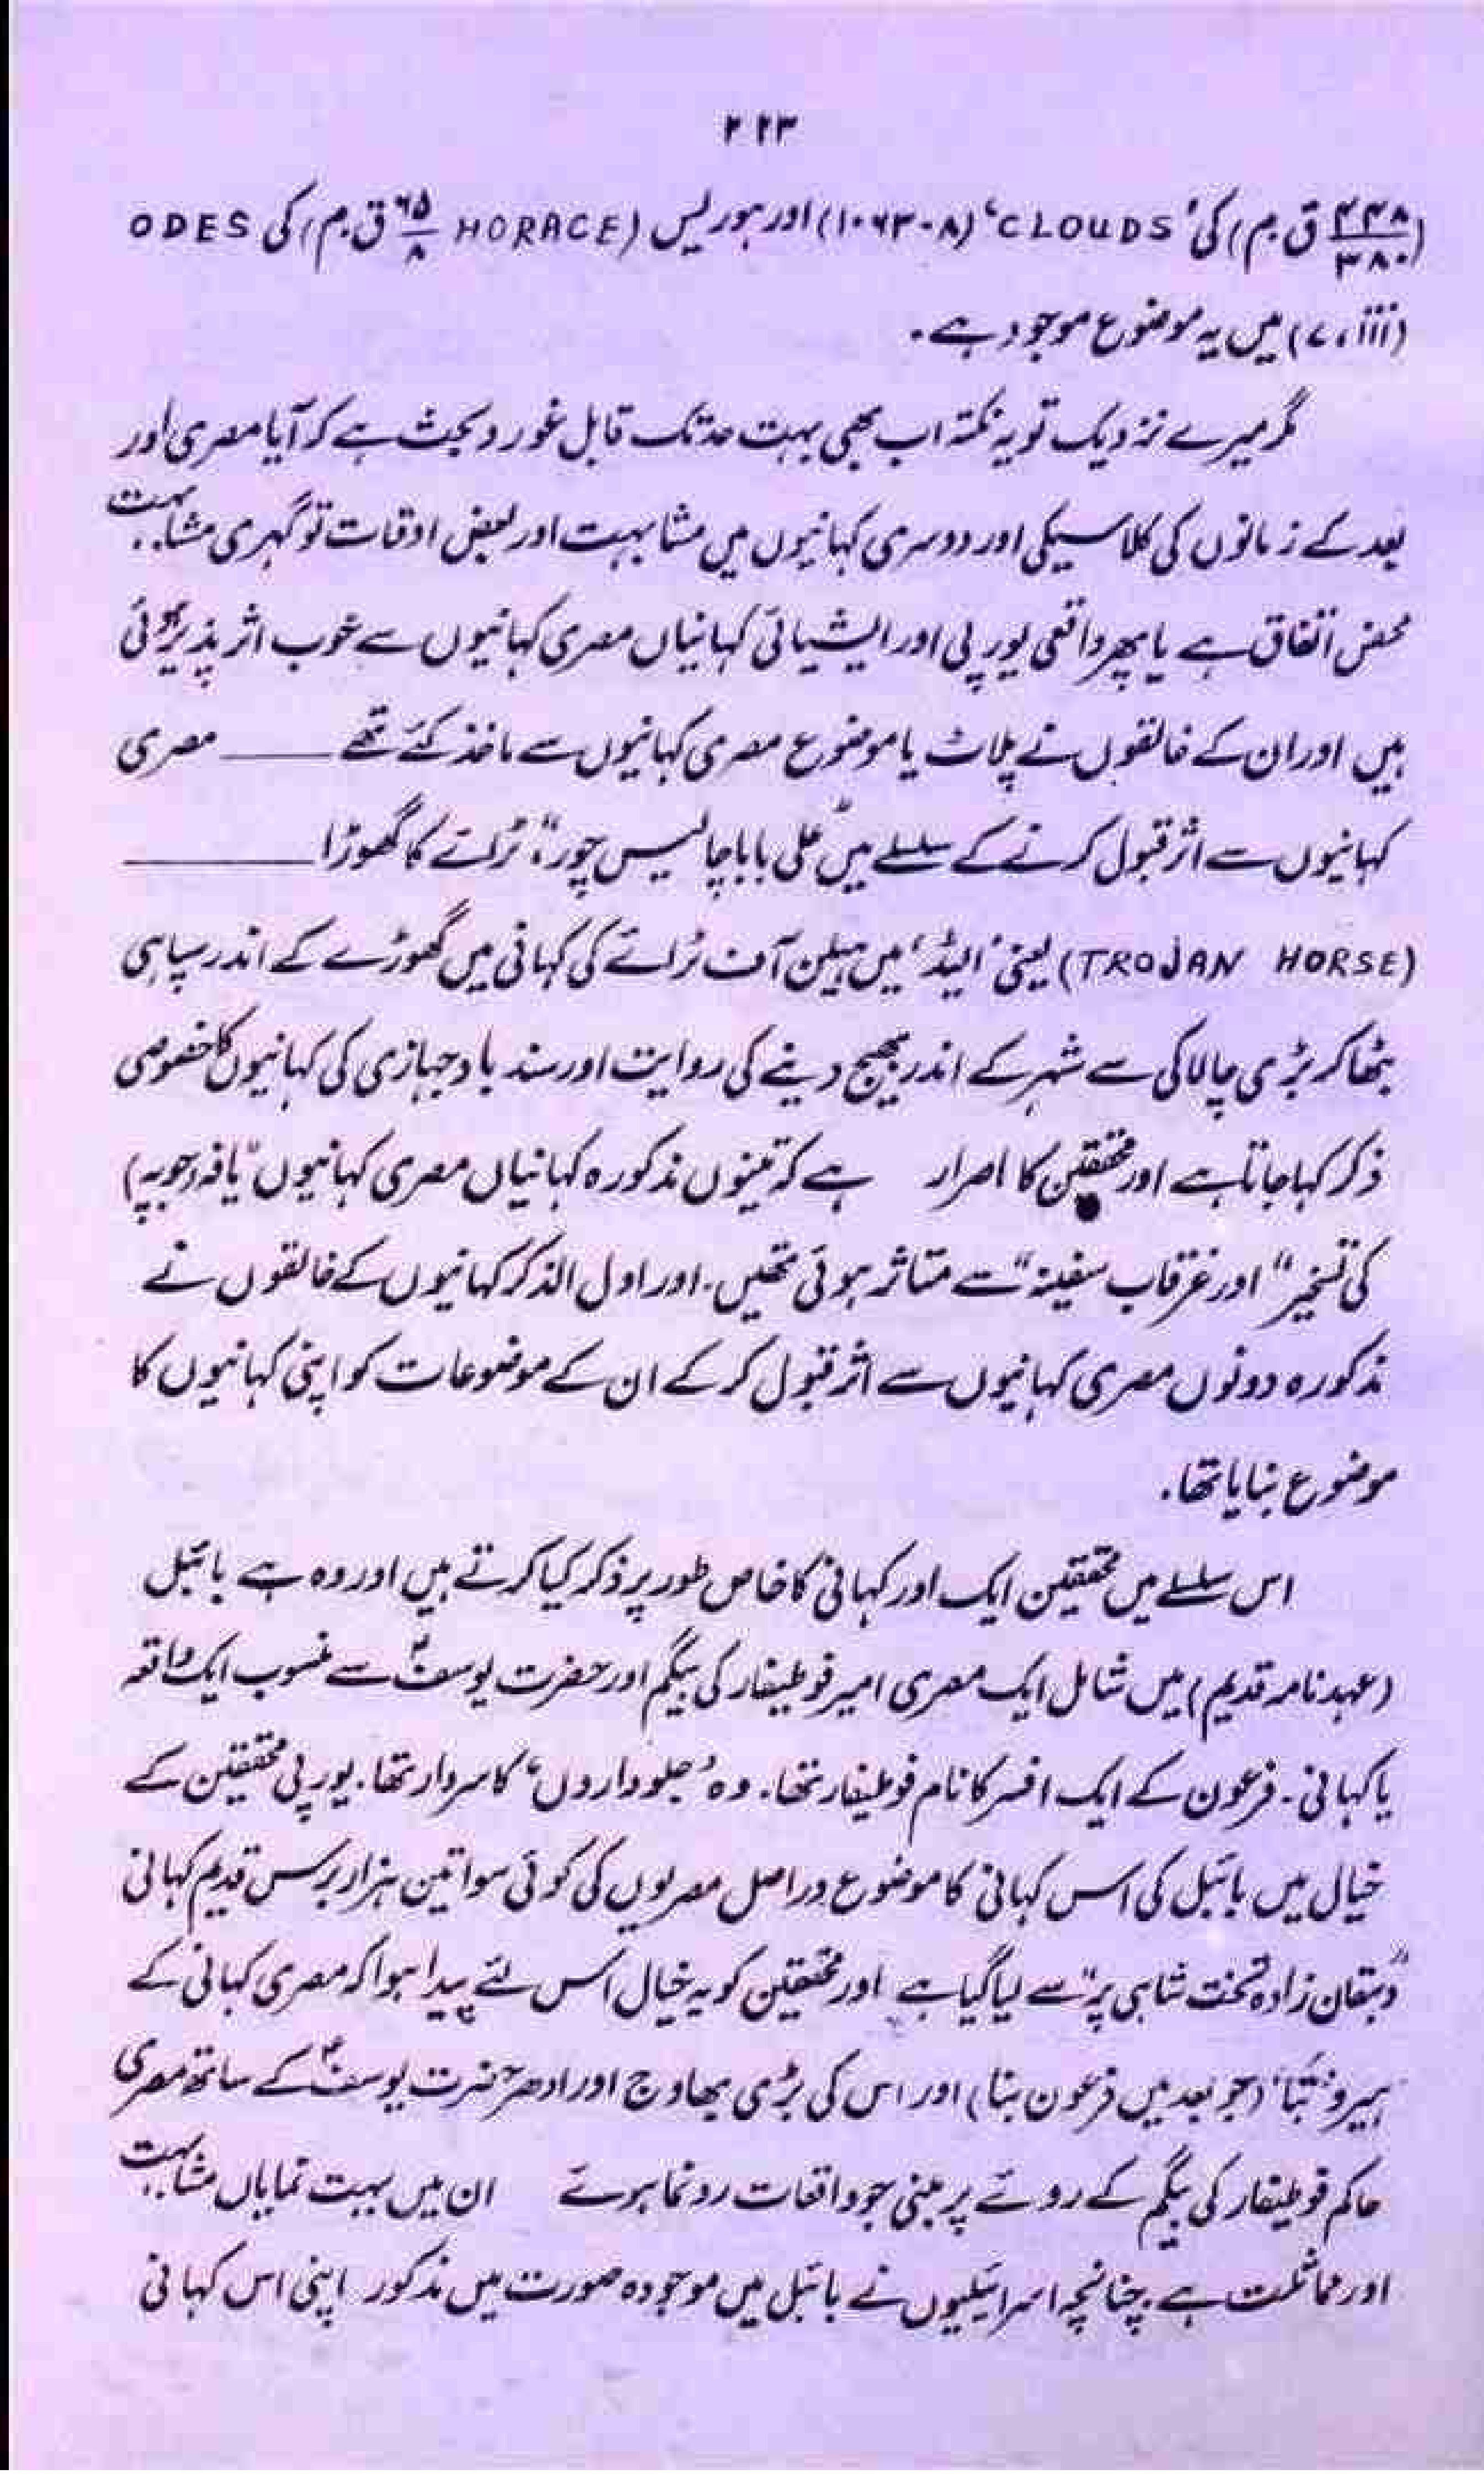 ۲۲۳
(۴۴۸/۳۸۰ ق.م) کی ’CLOUDS‘ (۸-۱۰۶۳) اور ہوریس (HORACE ۶۵/۸ ق.م) کی ODES
(iii، ۷) میں یہ موضوع موجود ہے۔
مگر میرے نزدیک تو یہ نکتہ اب بھی بہت حد تک قابل غور و بحث ہے کہ آیا مصری اور
بعد کے زمانوں کی کلاسیکی اور دوسری کہانیوں میں مشابہت اور بعض اوقات تو گہری مشابہت
محض اتفاق ہے یا پھر واقعی یورپی اور ایشیائی کہانیاں مصری کہانیوں سے خوب اثر پذیر ہوئی
ہیں اور ان کے خالقوں نے پلاٹ یا موضوع مصری کہانیوں سے ماخذ کئے تھے ——— مصری
کہانیوں سے اثر قبول کرنے کے سلسلے میں ”علی بابا چالیس چور“، ٹرائے کا گھوڑا ———
(TROJAN HORSE) یعنی ’ایلیڈ‘ میں ہیلن آف ٹرائے کی کہانی میں گھوڑے کے اندر سپاہی
بٹھا کر بڑی چالاکی سے شہر کے اندر بھیج دینے کی روایت اور سند باد جہازی کی کہانیوں کا خصوصی
ذکر کہا جاتا ہے اور محققین کا اصرار ہے کہ تینوں مذکورہ کہانیاں مصری کہانیوں ”یافہ (جوپہ)
کی تسخیر“ اور غرقاب سفینہ“ سے متاثر ہوئی تھیں۔ اور اول الذکر کہانیوں کے خالقوں نے
مذکورہ دونوں مصری کہانیوں سے اثر قبول کر کے ان کے موضوعات کو اپنی کہانیوں کا
موضوع بنایا تھا۔
اس سلسلے میں محققین ایک اور کہانی کا خاص طور پر ذکر کیا کرتے ہیں اور وہ ہے بائبل
(عہد نامہ قدیم) میں شامل ایک مصری امیر فوطیفار کی بیگم اور حضرت یوسفؑ سے منسوب ایک واقعہ
یا کہانی۔ فرعون کے ایک افسر کا نام فوطیفار تھا۔ وہ ’جلوداروں‘ کا سردار تھا۔ یورپی محققین کے
خیال میں بائبل کی اس کہانی کا موضوع دراصل مصریوں کی کوئی سوا تین ہزار برس قدیم کہانی
”دہقان زادہ تخت شاہی پر“ سے لیا گیا ہے اور محققین کو یہ خیال اس لئے پیدا ہوا کہ مصری کہانی کے
ہیرو ’بَتا‘ (جو بعد میں فرعون بنا) اور اس کی بڑی بھاوج اور ادھر حضرت یوسفؑ کے ساتھ مصری
حاکم فوطیفار کی بیگم کے روئے پر مبنی جو واقعات رونما ہوئے ان میں بہت نمایاں مشابہت
اور مماثلت ہے۔ چنانچہ اسرائیلیوں نے بائبل میں موجودہ صورت میں مذکور اپنی اس کہانی